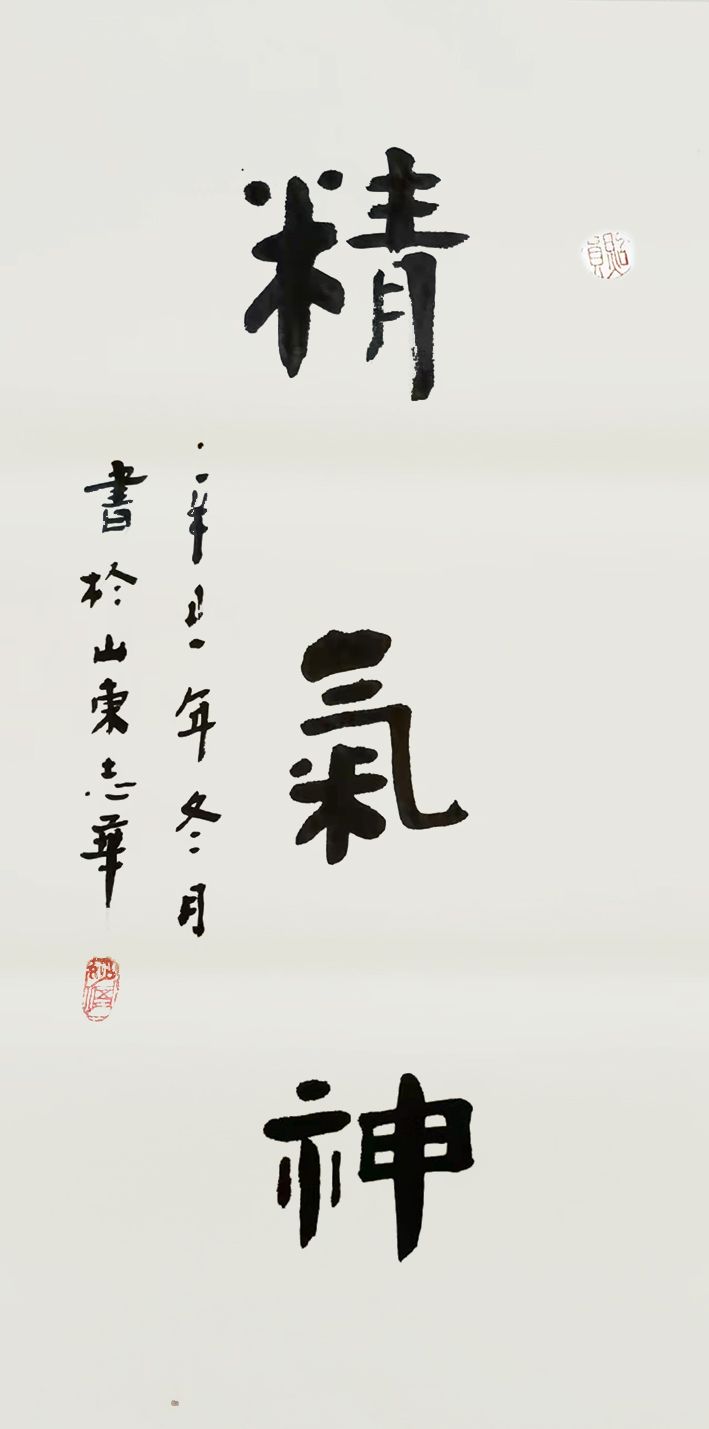 精氣神
辛丑年冬月
書於山東志華